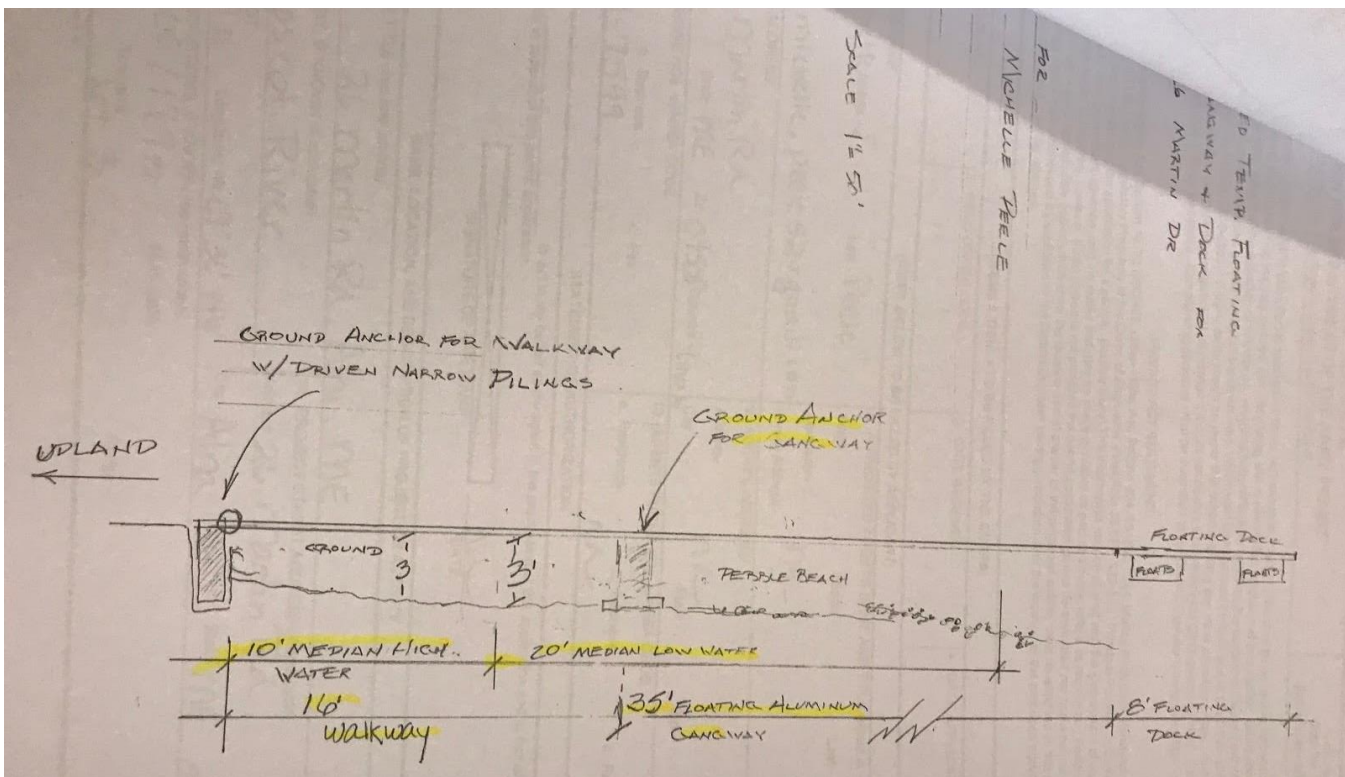 ED TEMP. FLOATING
NGWAY & DOCK FOR
6 MARTIN DR
FOR
MICHELLE PEELE
SCALE 1"= 50'
GROUND ANCHOR FOR WALKWAY
W/ DRIVEN NARROW PILINGS
GROUND ANCHOR
FOR GANGWAY
UPLAND
GROUND
3
3'
PEBBLE BEACH
FLOATING DOCK
FLOATS
FLOATS
10' MEDIAN HIGH
WATER
20' MEDIAN LOW WATER
16'
Walkway
35' FLOATING ALUMINUM
GANGWAY
8' FLOATING
DOCK